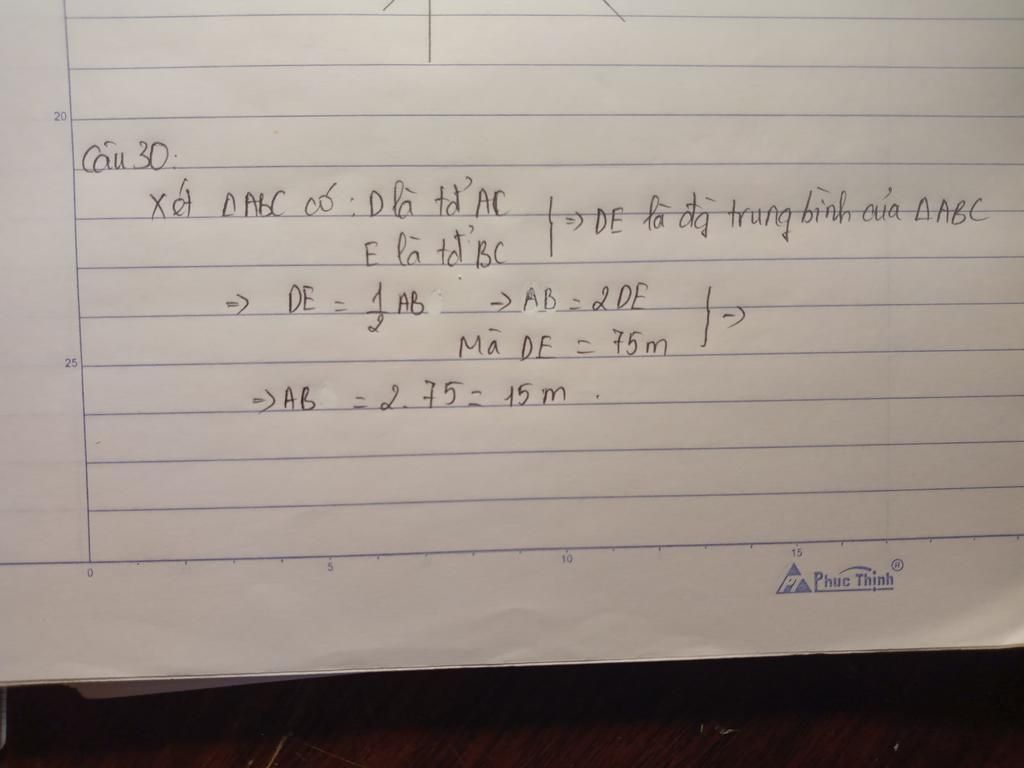 20
Câu 30:
Xét ΔABC có: D là tđ' AC
E là tđ' BC
} => DE là đg trung bình của ΔABC
=> DE = 1/2 AB => AB = 2DE
Mà DE = 75m
} =>
25
=> AB = 2.75 = 15m.
0 5 10 15
Phuc Thinh ®